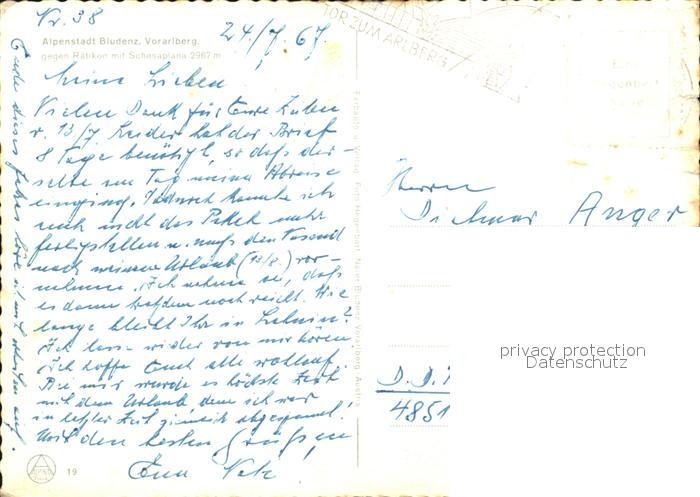 Nr. 38
24/7. 67.
Alpenstadt Bludenz, Vorarlberg,
gegen Rätikon mit Schesaplana 2967 m
TOR ZUM ARLBERG
Meine Lieben
Vielen Dank für Eure Zeilen
v. 13/7. Leider hat der Brief
8 Tage benötigt, so dafs der-
selbe am Tag meiner Abreise
einging. Dadurch konnte ich
auch nicht das Paket mehr
fertigstellen u. mufs den Versand
nach meinem Urlaub (13/8.) vor-
nehmen. Ich nehme an, dafs
es dann trotzdem noch reicht. Wie
lange bleibt Ihr in Lehnin?
Ich lass wieder von mir hören.
Ich hoffe Euch alle wohlauf.
Bei mir wurde es höchste Zeit
mit dem Urlaub, denn ich war
in letzter Zeit ziemlich abgespannt.
Mit den besten Grüfsen
Euer
Ende dieses Jahres höre ich mit
auf.
Herrn
Dietmar Anger
D.D.
4851
privacy protection
Datenschutz
19